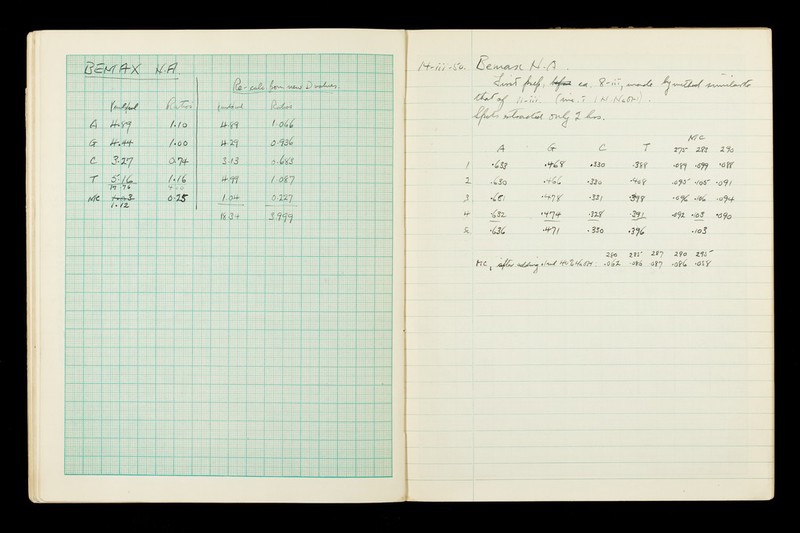 BEMAX N.A.
Re-calc from new D values
Ratios Ratios
A 4.89 1.10 4.89 1.066
G 4.44 1.00 4.29 0.936
C 3.27 0.74 3.13 0.683
T 5.16 1.16 4.99 1.087
MC 1.12 0.25 1.04 0.227
18.34 3.999
14-iii-50. Bemax N.A.
ca. 8-iii, made by method similar to
that of 11-iii. (inc. in 1 N NaOH).
only 2 hrs.
MC
A G C T 275 282 290
1 .633 .468 .330 .388 .089 .099 .088
2 .630 .466 .320 .408 .095 .105 .091
3 .651 .478 .321 .398 .096 .106 .094
4 .632 .474 .328 .391 .092 .103 .090
5 .636 .471 .330 .396 .103
280 285 287 290 295
MC, after adding NaOH .062 .086 .087 .086 .058